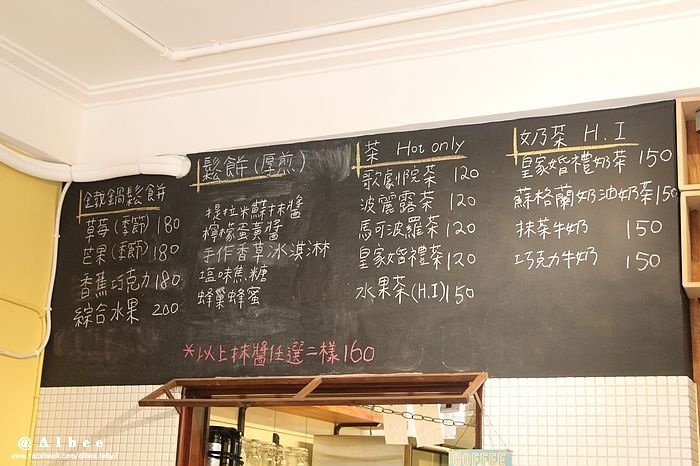 鐵鍋鬆餅
草莓(季節) 180
芒果(季節) 180
香蕉巧克力 180
綜合水果 200
鬆餅(厚煎)
提拉米蘇抹醬
檸檬蛋黃醬
手作香草冰淇淋
塩味焦糖
蜂巢蜂蜜
*以上抹醬任選二樣160
茶 Hot only
歌劇院茶 120
波麗露茶 120
馬可波羅茶 120
皇家婚禮茶 120
水果茶(H.I) 150
奶茶 H.I
皇家婚禮奶茶 150
蘇格蘭奶油奶茶 150
抹茶牛奶 150
巧克力牛奶 150
COFFEE
@Albee